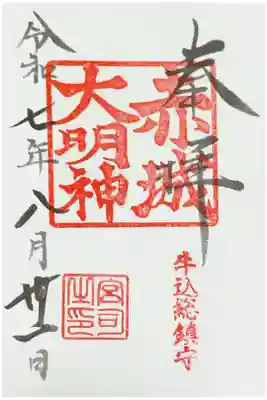 奉拝
牛込総鎮守
赤城
大明神
宮司
之印
令和七年八月卅一日